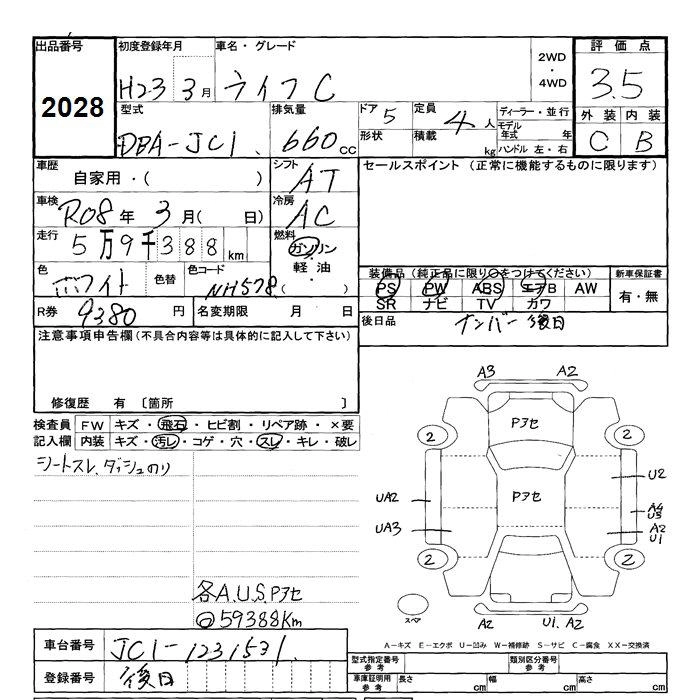 出品番号
2028
初度登録年月
H23 3月
車名・グレード
ライフ C
2WD
・
4WD
評価点
3.5
外装 内装
C B
型式
DBA-JC1
排気量
660 cc
ドア 5
形状
定員 4 人
積載 kg
ディーラー・並行
モデル年式 年
ハンドル 左・右
車歴
自家用・( )
シフト
AT
車検
R08年 3月( 日)
冷房
AC
走行
5万9千388 km
燃料
ガソリン
・
軽油
・
( )
色
ホワイト
色替
色コード
NH578
R券 9380 円
名変期限 月 日
セールスポイント (正常に機能するものに限ります)
装備品(純正品に限り○をつけてください)
PS PW ABS エアB AW
SR ナビ TV カワ
新車保証書
有・無
後日品
ナンバー後日
注意事項申告欄(不具合内容等は具体的に記入して下さい)
修復歴 有 〔箇所 〕
検査員 FW キズ・飛石・ヒビ割・リペア跡・×要
記入欄 内装 キズ・汚レ・コゲ・穴・スレ・キレ・破レ
シートスレ、ダッシュのり
各A.U.S Pアセ
◎59388Km
A3 A2
Pアセ
2 2
U2
Pアセ
UA2
A4
U3
UA3
A2
U1
2 2
スペア
A2 U1. A2
A-キズ E-エクボ U-凹み W-補修跡 S-サビ C-腐食 XX-交換済
車台番号 JC1-1231531
登録番号 後日
型式指定番号
参考
類別区分番号
参考
車庫証明用
参考
長さ cm 幅 cm 高さ cm